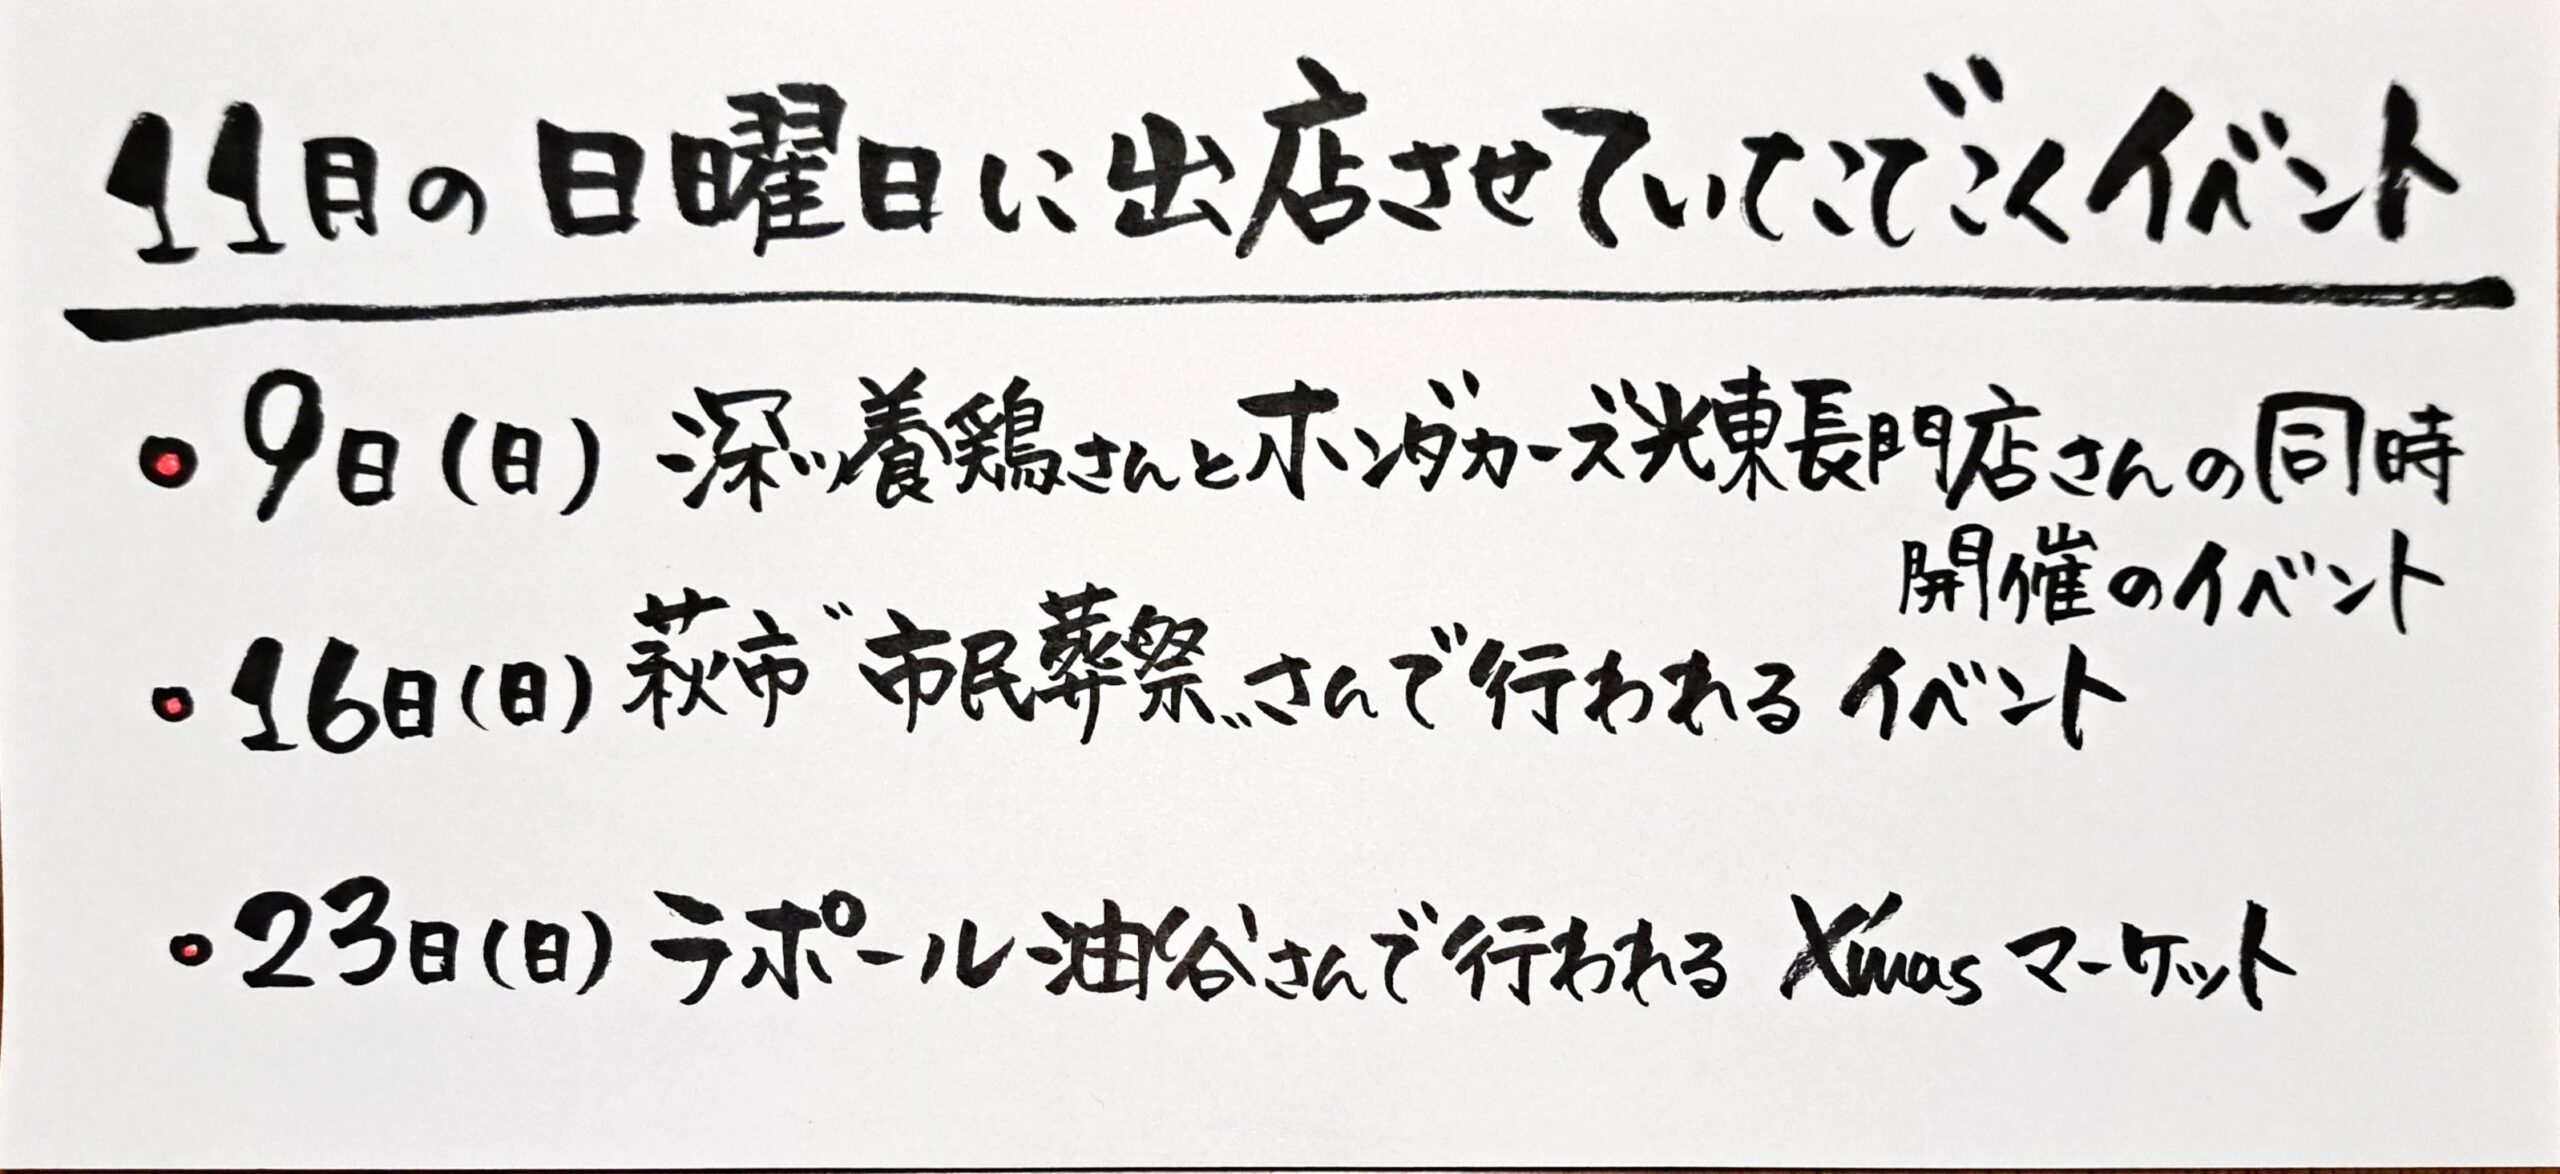 11月の日曜日に出店させていただくイベント
• 9日(日) 深川養鶏さんとホンダカーズ光東長門店さんの同時
開催のイベント
• 16日(日) 萩市"市民葬祭"さんで行われる イベント
• 23日(日) ラポール油谷さんで行われる X'mas マーケット